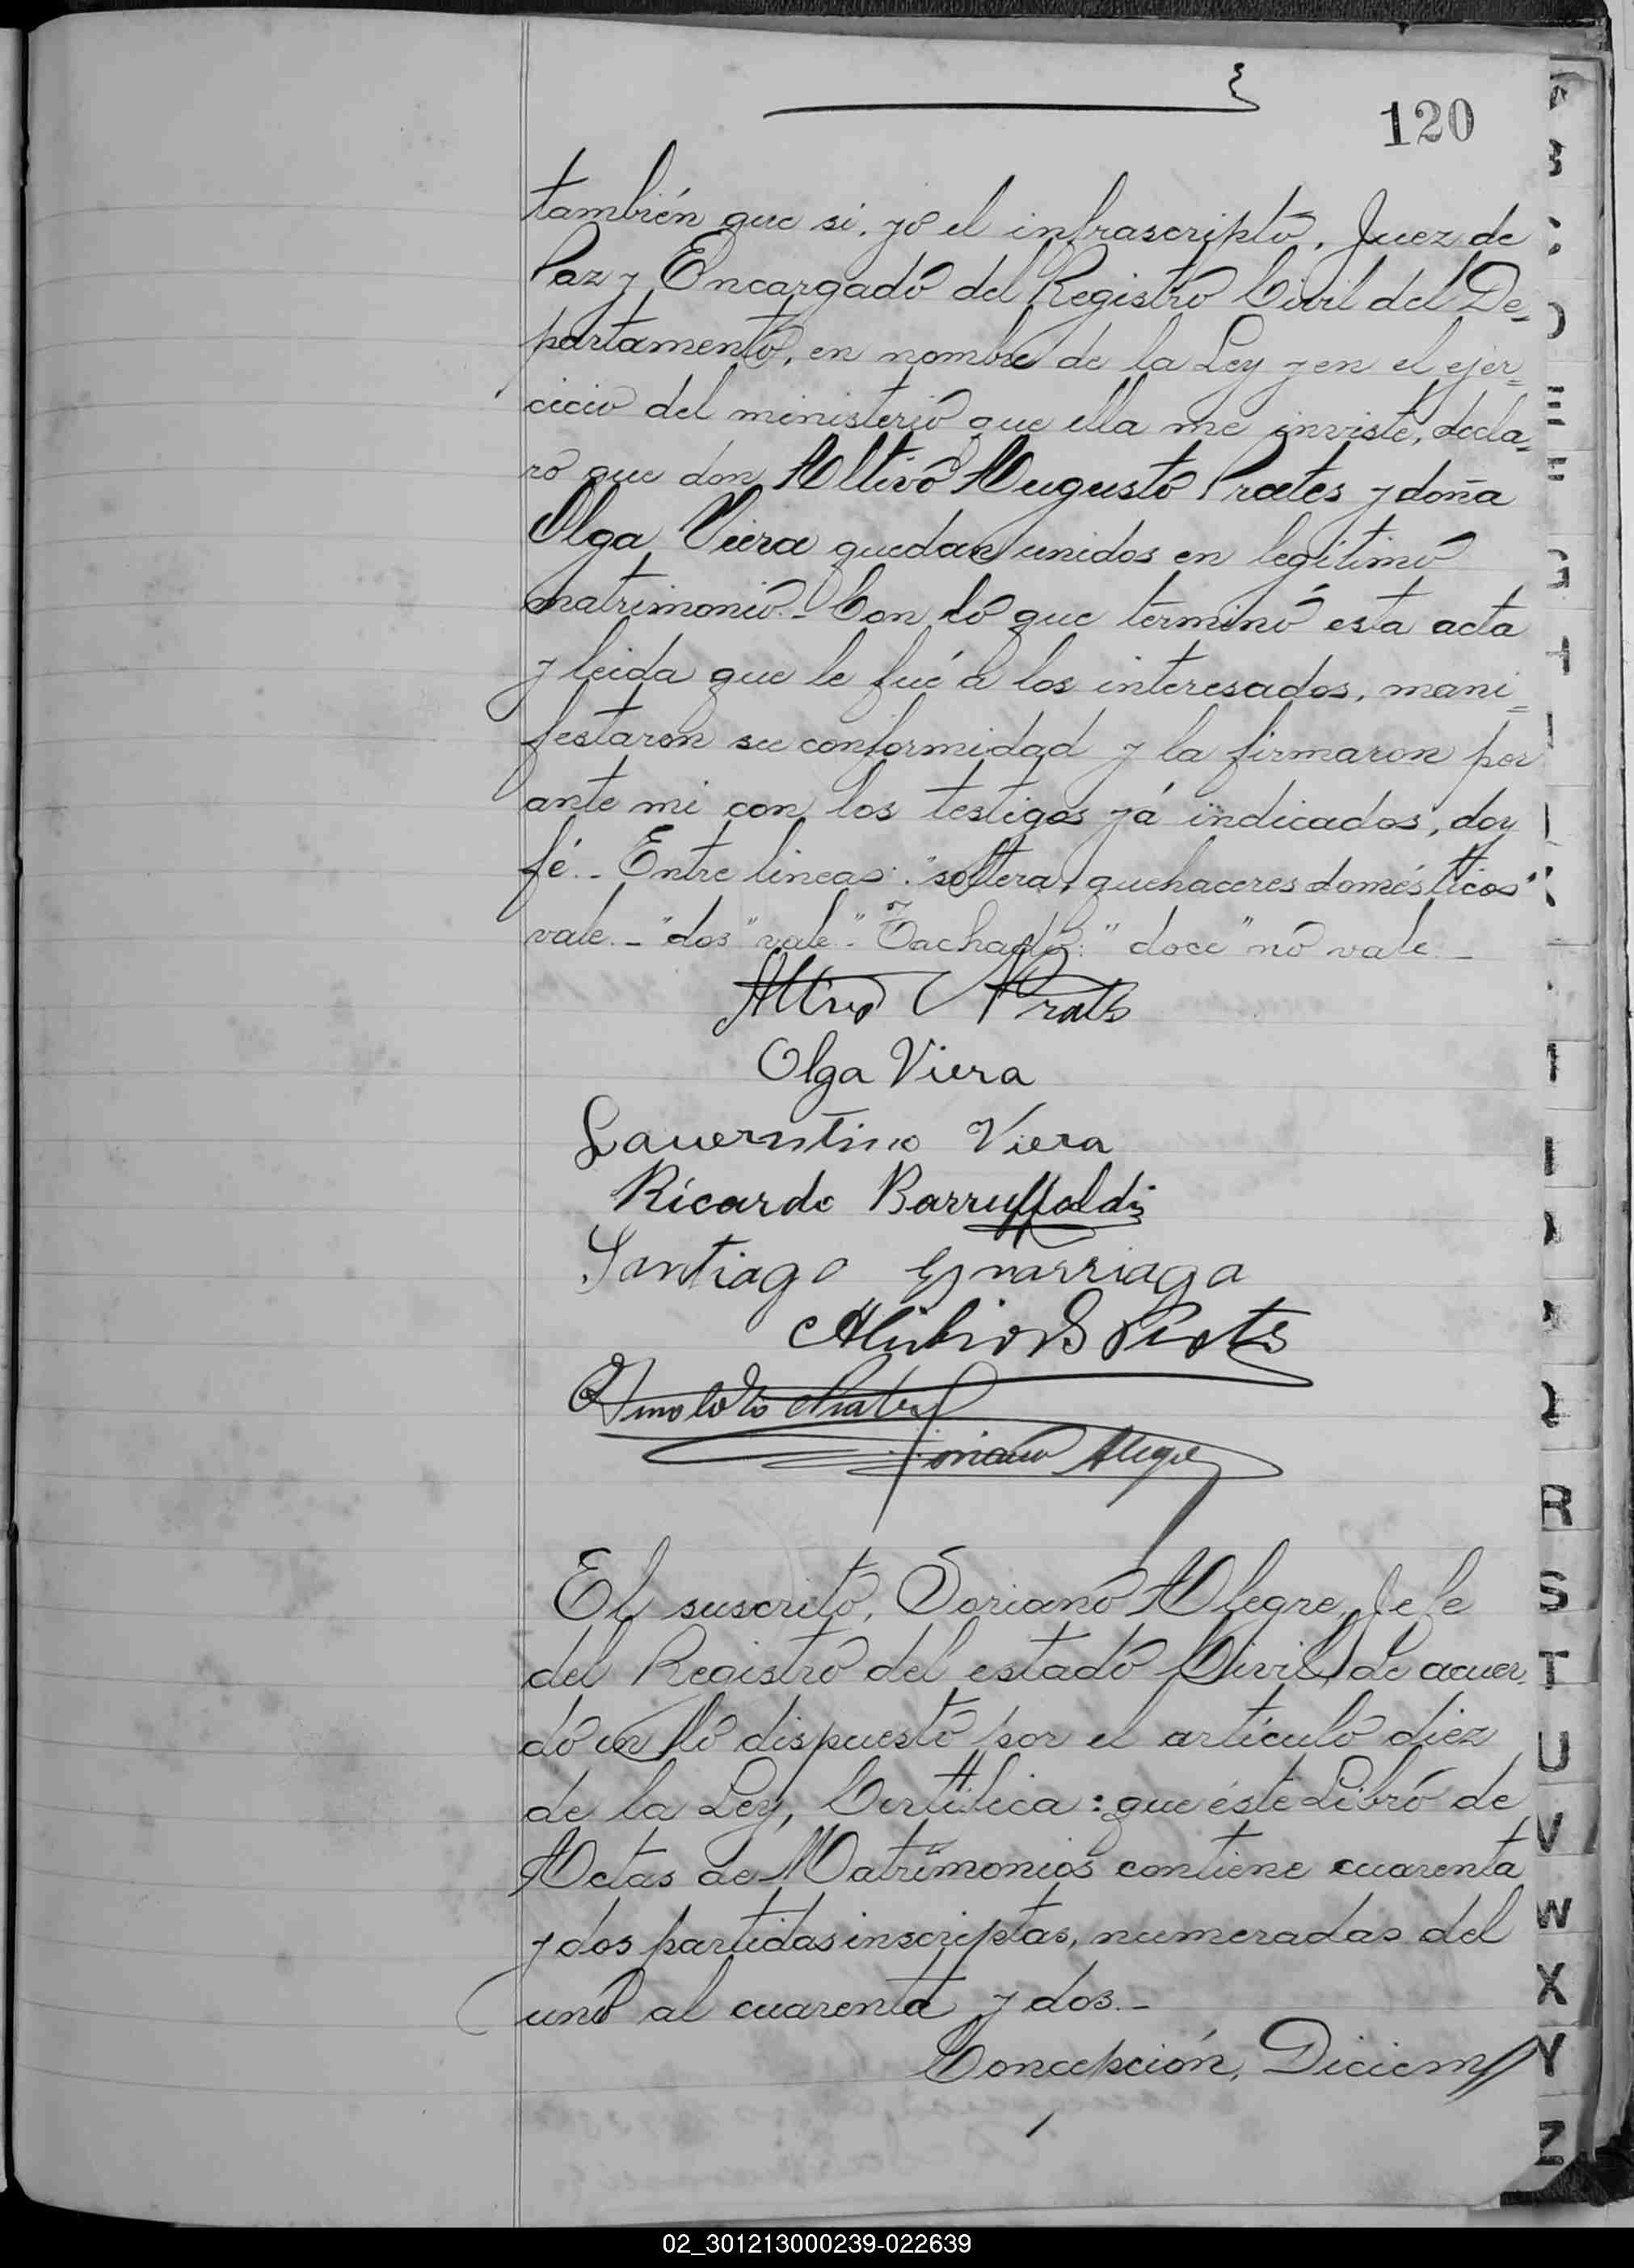 120
también que si, yo el infrascripto, Juez de
Paz y Encargado del Registro Civil del De-
partamento, en nombre de la Ley y en el ejer-
cicio del ministerio que ella me inviste, decla-
ro que don Altivo Augusto Prates y doña
Olga Viera quedan unidos en legítimo
matrimonio.- Con lo que terminó esta acta
y leida que le fué á los interesados, mani-
festaron su conformidad y la firmaron por
ante mi con los testigos yá indicados, doy
fé.- Entre lineas: "soltera, quehaceres domésticos"
vale.- "dos" vale.- Tachado: "doce" no vale.-
Altivo A Prates
Olga Viera
Lauerntino Viera
Ricardo Barruffaldi
Santiago
Soriano Alegre
El suscrito, Soriano Alegre, Jefe
del Registro del estado Civil, de acuer-
do en lo dispuesto por el artículo diez
de la Ley, Certifica: que éste Libro de
Actas de Matrimonios contiene cuarenta
y dos partidas inscriptas, numeradas del
uno al cuarenta y dos.-
Concepción, Diciem//
R
S
T
U
V
W
X
Y
Z
02_301213000239-022639